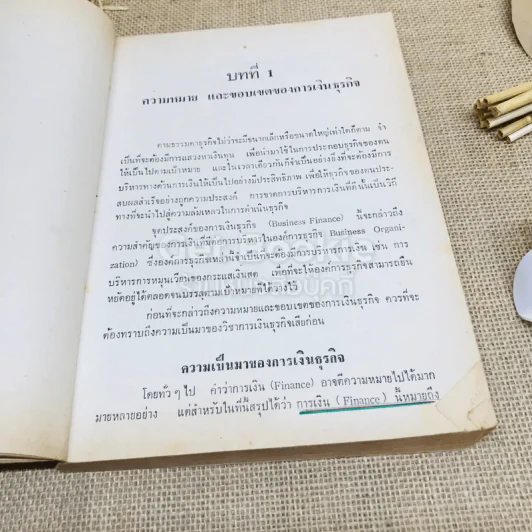 บทที่ 1
ความหมาย และขอบเขตของการเงินธุรกิจ
ตามธรรมดาธุรกิจไม่ว่าจะมีขนาดเล็กหรือขนาดใหญ่เท่าใดก็ตาม จำ
เป็นที่จะต้องมีการแสวงหาเงินทุน เพื่อนำมาใช้ในการประกอบธุรกิจของตน
ให้เป็นไปตามเป้าหมาย และในเวลาเดียวกันก็จำเป็นอย่างยิ่งที่จะต้องมีการ
บริหารทางด้านการเงินให้เป็นไปอย่างมีประสิทธิภาพ เพื่อให้ธุรกิจของตนประ-
สบผลสำเร็จอย่างถูกความประสงค์ การขาดการบริหารการเงินที่ดีนั้นเป็นวิถี
ทางที่จะนำไปสู่ความล้มเหลวในการดำเนินธุรกิจ
จุดประสงค์ของการเงินธุรกิจ (Business Finance) นี้จะกล่าวถึง
ความสำคัญของการเงินที่มีต่อการบริหารในองค์การธุรกิจ Business Organi-
zation) ซึ่งองค์การธุรกิจเหล่านี้จำเป็นที่จะต้องมีการบริหารการเงิน เช่น การ
บริหารการหมุนเวียนของกระแสเงินสด เพื่อที่จะให้องค์การธุรกิจสามารถยืน
หยัดอยู่ได้ตลอดจนบรรลุตามเป้าหมายที่ได้วางไว้
ก่อนที่จะกล่าวถึงความหมายและขอบเขตของการเงินธุรกิจ ควรที่จะ
ต้องทราบถึงความเป็นมาของวิชาการเงินธุรกิจเสียก่อน
ความเป็นมาของการเงินธุรกิจ
โดยทั่ว ๆ ไป คำว่าการเงิน (Finance) อาจตีความหมายไปได้มาก
มายหลายอย่าง แต่สำหรับในที่นี้สรุปได้ว่า การเงิน ( Finance ) นี้หมายถึง